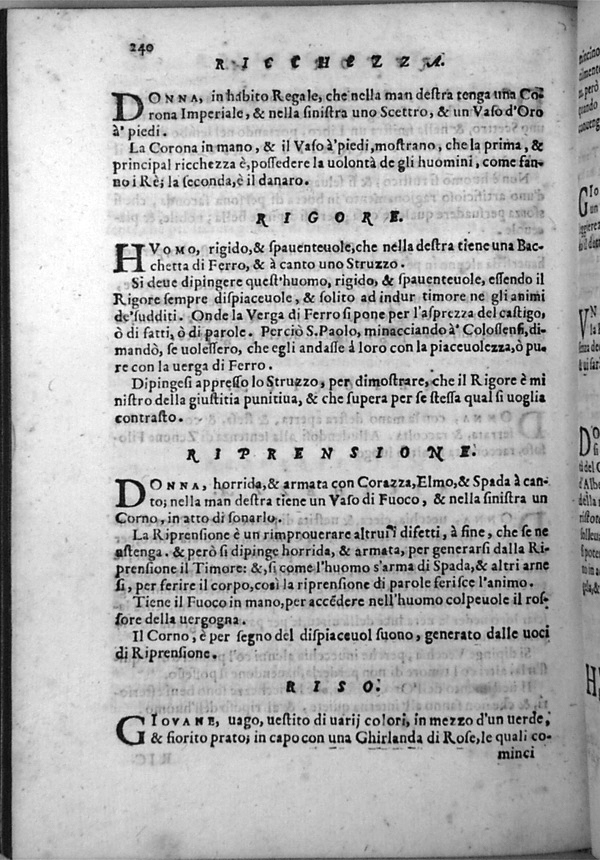 240
RICCHEZZA.
DONNA, in habito Regale, che nella man destra tenga una Co-
rona Imperiale, & nella sinistra uno Scettro, & un Vaso d'Oro
à' piedi.
La Corona in mano, & il Vaso à'piedi, mostrano, che la prima, &
principal ricchezza è, possedere la uolontà de gli huomini, come fan-
no i Rè; la seconda, è il danaro.
RIGORE.
HVOMO, rigido, & spauenteuole, che nella destra tiene una Bac-
chetta di Ferro, & à canto uno Struzzo.
Si deue dipingere quest'huomo, rigido, & spauenteuole, essendo il
Rigore sempre dispiaceuole, & solito ad indur timore ne gli animi
de'sudditi. Onde la Verga di Ferro si pone per l'asprezza del castigo,
ò di fatti, ò di parole. Perciò S.Paolo, minacciando à' Colossensi, di-
mandò, se uolessero, che egli andasse à loro con la piaceuolezza, ò pu-
re con la uerga di Ferro.
Dipingesi appresso lo Struzzo, per dimostrare, che il Rigore è mi
nistro della giustitia punitiua, & che supera per se stessa qual si uoglia
contrasto.
RIPRENSIONE.
DONNA, horrida, & armata con Corazza, Elmo, & Spada à can-
to; nella man destra tiene un Vaso di Fuoco, & nella sinistra un
Corno, in atto di sonarlo.
La Riprensione è un rimprouerare altrui difetti, à fine, che se ne
astenga. & però si dipinge horrida, & armata, per generarsi dalla Ri-
prensione il Timore: &, si come l'huomo s'arma di Spada, & altri arne
si, per ferire il corpo, così la riprensione di parole ferisce l'animo.
Tiene il Fuoco in mano, per accédere nell'huomo colpeuole il ros-
sore della uergogna.
Il Corno, è per segno del dispiaceuol suono, generato dalle uoci
di Riprensione.
RISO.
GIOVANE, uago, uestito di uarij colori, in mezzo d'un uerde,
& fiorito prato; in capo con una Ghirlanda di Rose, le quali co-
minci